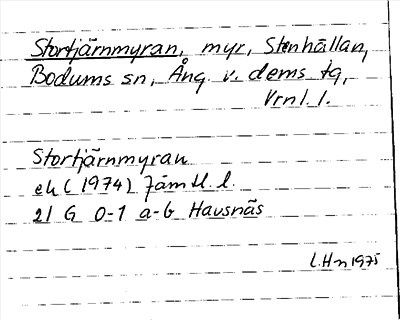 Stortjärnmyran, myr, Stenhällan,
Bodums sn, Ång. v. dems tg,
Vrnl. l.
Stortjärnmyran
ek (1974) Jämtl. l.
21 G 0-1 a-b Havsnäs
L.Hn 1975